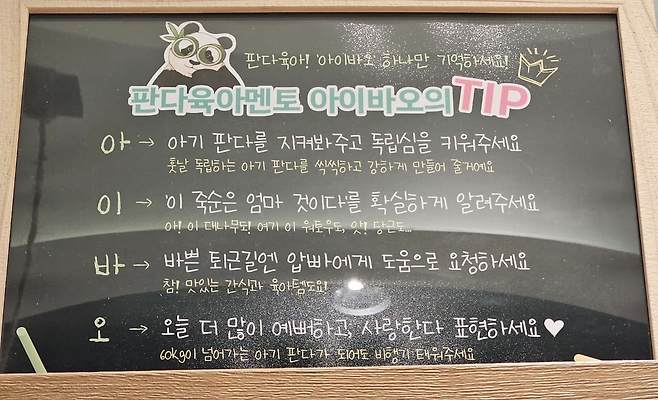 판다육아! '아이바오' 하나만 기억하세요!
판다육아멘토 아이바오의 TIP
아 → 아기 판다를 지켜봐주고 독립심을 키워주세요
훗날 독립하는 아기 판다를 씩씩하고 강하게 만들어 줄거에요
이 → '이 죽순은 엄마 것이다'를 확실하게 알려주세요
아! 이 대나무도! 여기 이 워토우도, 앗! 당근도...
바 → 바쁜 퇴근길엔 압빠에게 도움으로 요청하세요
참! 맛있는 간식과 육아템도요!
오 → 오늘 더 많이 예뻐하고, 사랑한다 표현하세요♥
60kg이 넘어가는 아기 판다가 되어도 비행기 태워주세요